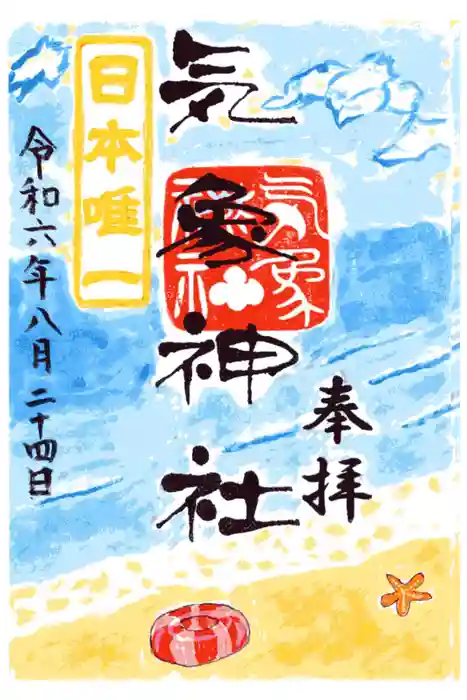 奉拝
気象神社
気象神社
日本唯一
令和六年八月二十四日